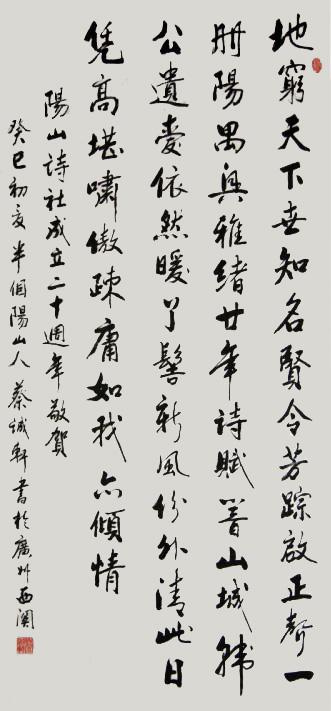 地窮天下世知名賢令芳踪啟正聲一
冊陽嵒興雅緒廿年詩賦著山城韓
公遺愛依然暖丫髻新風份外清此日
凭高堪嘯傲疎庸如我亦傾情
陽山詩社成立二十週年敬賀
癸巳初夏半個陽山人蔡城軒書於廣州西關